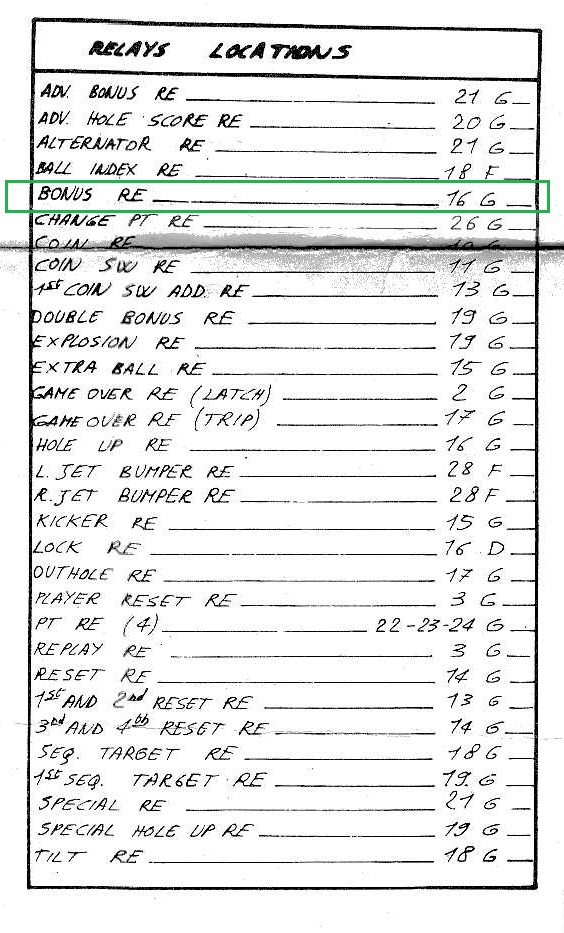 RELAYS LOCATIONS
ADV. BONUS RE 21 G
ADV. HOLE SCORE RE 20 G
ALTERNATOR RE 21 G
BALL INDEX RE 18 F
BONUS RE 16 G
CHANGE PT RE 26 G
COIN RE 10 G
COIN SW RE 11 G
1st COIN SW ADD RE 13 G
DOUBLE BONUS RE 19 G
EXPLOSION RE 19 G
EXTRA BALL RE 15 G
GAME OVER RE (LATCH) 2 G
GAME OVER RE (TRIP) 17 G
HOLE UP RE 16 G
L. JET BUMPER RE 28 F
R. JET BUMPER RE 28 F
KICKER RE 15 G
LOCK RE 16 D
OUTHOLE RE 17 G
PLAYER RESET RE 3 G
PT RE (4) 22-23-24 G
REPLAY RE 3 G
RESET RE 14 G
1st AND 2nd RESET RE 13 G
3rd AND 4th RESET RE 14 G
SEQ. TARGET RE 18 G
1st SEQ. TARGET RE 19 G
SPECIAL RE 21 G
SPECIAL HOLE UP RE 19 G
TILT RE 18 G